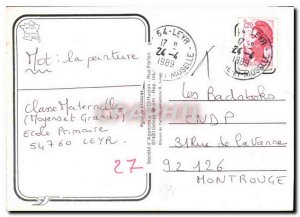 54-LEYR
17 H
24-4
1989
Mt et MOSELLE
2,20
Mot : la peinture
Classe Maternelle
(Moyens et Grands)
Ecole Primaire
54760 LEYR
27
Les Badaboks
CNDP
31 rue de la Vanne
92 126
MONTROUGE